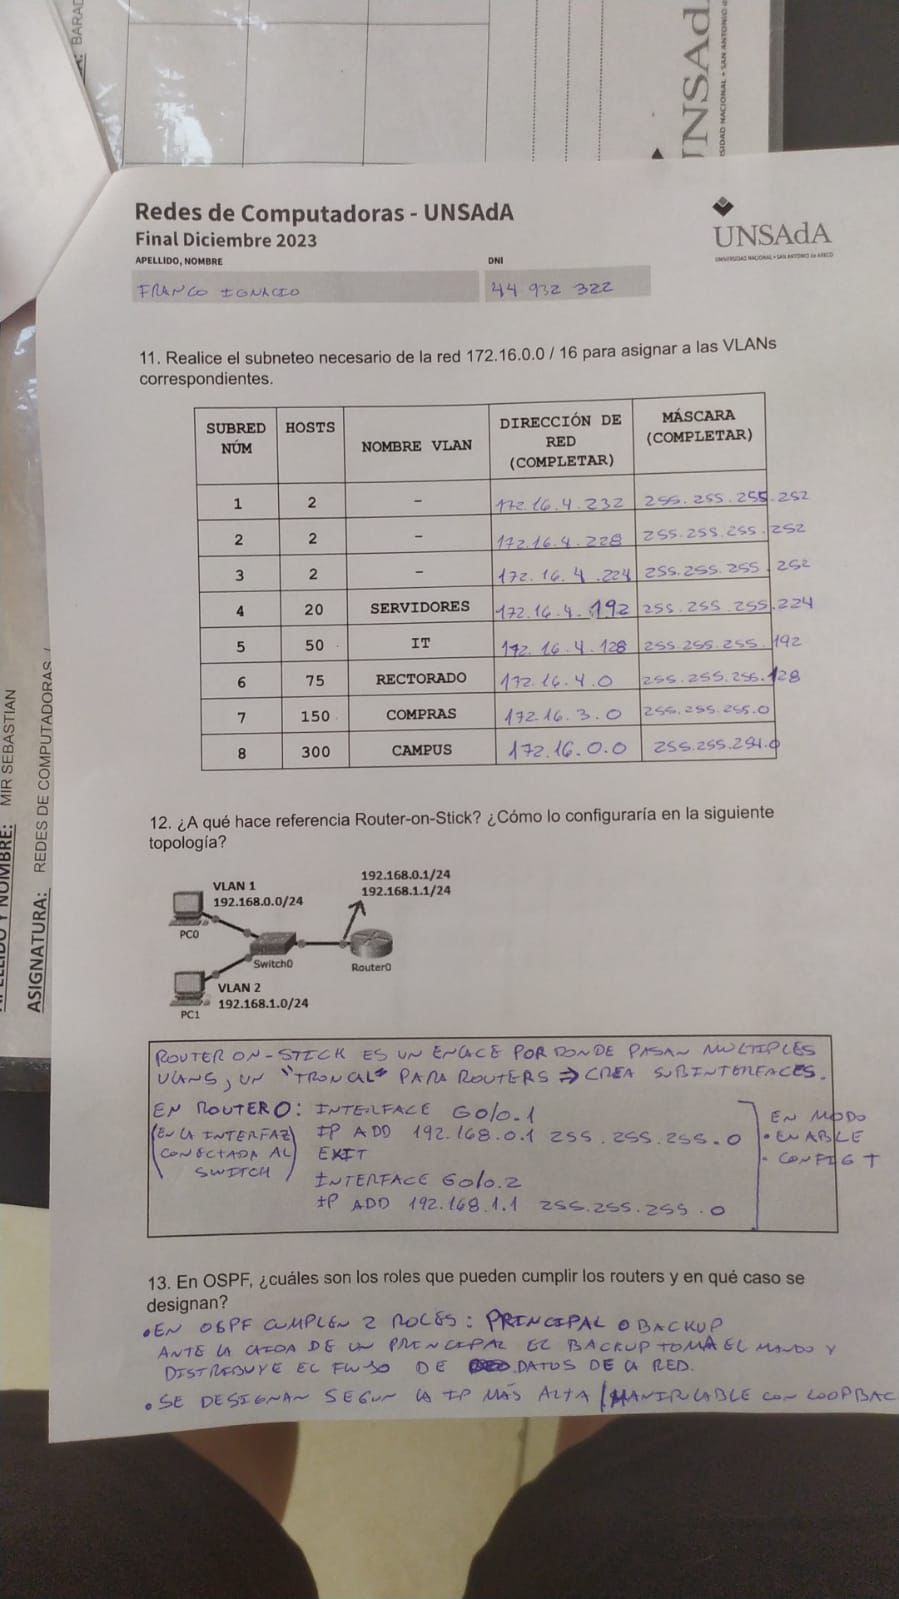 BARAD
UNSAd
SIDAD NACIONAL • SAN ANTONIO
Redes de Computadoras - UNSAdA
Final Diciembre 2023
APELLIDO, NOMBRE DNI
FRANCO IGNACIO 44 932 322
UNSAdA
UNIVERSIDAD NACIONAL • SAN ANTONIO de ARECO
11. Realice el subneteo necesario de la red 172.16.0.0 / 16 para asignar a las VLANs
correspondientes.
SUBRED NÚM HOSTS NOMBRE VLAN DIRECCIÓN DE RED (COMPLETAR) MÁSCARA (COMPLETAR)
1 2 - 172.16.4.232 255.255.255.252
2 2 - 172.16.4.228 255.255.255.252
3 2 - 172.16.4.224 255.255.255.252
4 20 SERVIDORES 172.16.4.192 255.255.255.224
5 50 IT 172.16.4.128 255.255.255.192
6 75 RECTORADO 172.16.4.0 255.255.255.128
7 150 COMPRAS 172.16.3.0 255.255.255.0
8 300 CAMPUS 172.16.0.0 255.255.254.0
12. ¿A qué hace referencia Router-on-Stick? ¿Cómo lo configuraría en la siguiente
topología?
VLAN 1
192.168.0.0/24
192.168.0.1/24
192.168.1.1/24
PC0
Switch0
Router0
VLAN 2
192.168.1.0/24
PC1
ROUTER ON-STICK ES UN ENLACE POR DONDE PASAN MULTIPLES
VLANS, UN "TRONCAL" PARA ROUTERS ⇒ CREA SUBINTERFACES.
EN ROUTER0: INTERFACE G0/0.1
(EN LA INTERFAZ IP ADD 192.168.0.1 255.255.255.0
CONECTADA AL EXIT
SWITCH) INTERFACE G0/0.2
IP ADD 192.168.1.1 255.255.255.0
EN MODO
• ENABLE
• CONFIG T
13. En OSPF, ¿cuáles son los roles que pueden cumplir los routers y en qué caso se
designan?
• EN OSPF CUMPLEN 2 ROLES: PRINCIPAL O BACKUP
ANTE LA CAIDA DE UN PRINCIPAL EL BACKUP TOMA EL MANDO Y
DISTRIBUYE EL FLUJO DE DATOS DE LA RED.
• SE DESIGNAN SEGUN LA IP MÁS ALTA / MANIPULABLE CON LOOPBAC
MIR SEBASTIAN
ASIGNATURA: REDES DE COMPUTADORAS /